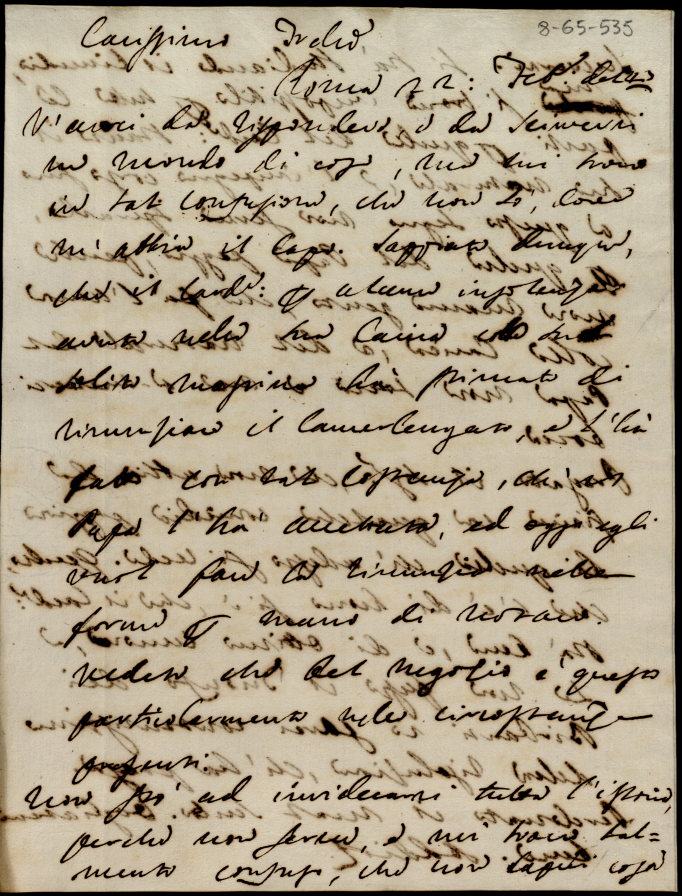 8-65-535
Carissimo
Roma 22: Feb.
V'avrei da rispondere, e da scrivervi
un mondo di cose, ma mi trovo
in tal confusione, che non so, dove
m'abbia il capo. Sappiate dunque,
che il Card:
avuta nella sua
solito ha pensato di
rinunziare il Camerlengato, e l'hà
fatto con tal costanza, che il
Papa l'ha accettata, ed oggi egli
vuol fare la rinunzia nelle
forme mano di notaro.
Vedete che bel negozio è questo
particolarmente nelle circostanze
presenti.
Non stò ad individuarvi tutta l'istoria,
perché non serve, e mi trovo tal=
mente confuso, che non saprei cosa